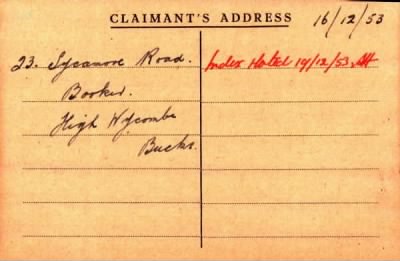 CLAIMANT'S ADDRESS
16/12/53
23. Sycamore Road.
Index Noted 19/12/53
Booker.
High Wycombe
Bucks.